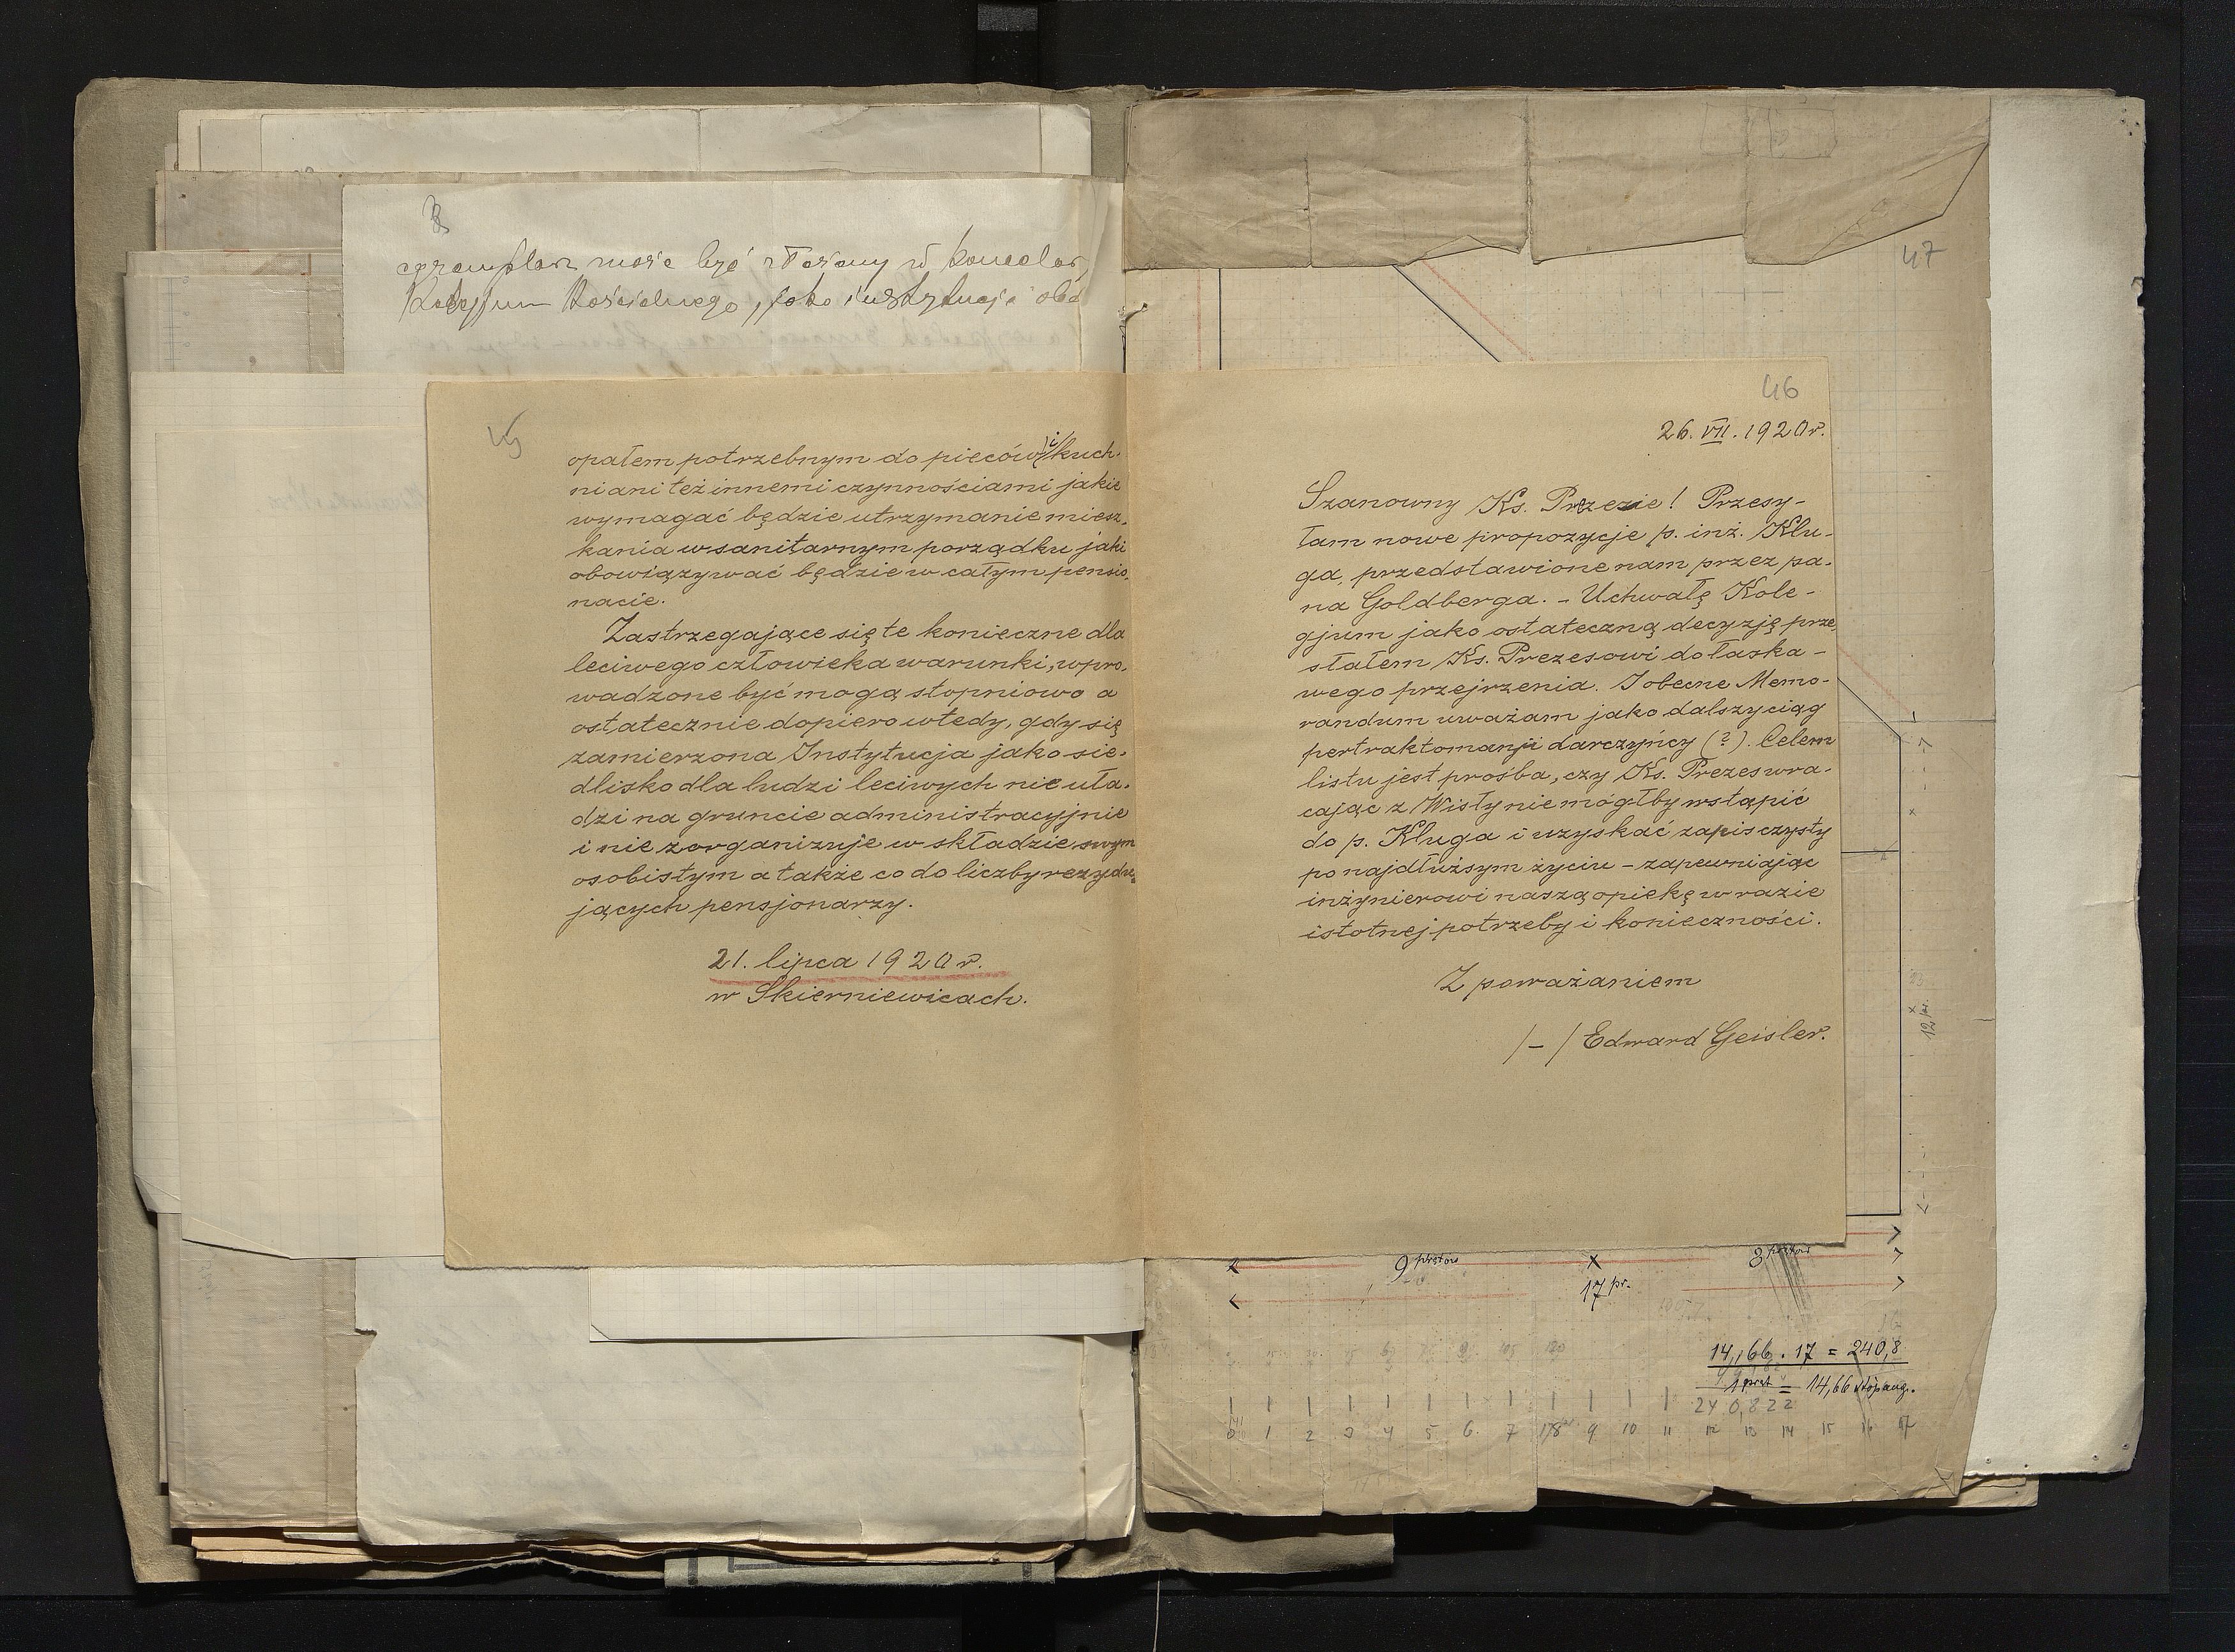 egzemplarz może być złożony w kancelar
Kolegjum Kościelnego, jako instytucja
45
opałem potrzebnym do pieców i kuch-
ni ani też innemi czynnościami jakie
wymagać będzie utrzymanie miesz-
kania w sanitarnym porządku jaki
obowiązywać będzie w całym pensio-
nacie.
Zastrzegające się te konieczne dla
leciwego człowieka warunki, wpro-
wadzone być mogą stopniowo a
ostatecznie dopiero wtedy, gdy się
zamierzona Instytucja jako sie-
dlisko dla ludzi leciwych nie uła-
dzi na gruncie administracyjnie
i nie zorganizuje w składzie swym
osobistym a także co do liczby rezydu-
jących pensjonarzy.
21. lipca 1920 r.
w Skierniewicach.
46
26. VII. 1920 r.
Szanowny Ks. Prezesie! Przesy-
łam nowe propozycje p. inż. Klu-
ga, przedstawione nam przez pa-
na Goldberga. – Uchwałę Kole-
gjum jako ostateczną decyzję prze-
słałem Ks. Prezesowi do łaska-
wego przejrzenia. I obecne Memo-
randum uważam jako dalszy ciąg
pertraktomanji darczyńcy (?). Celem
listu jest prośba, czy Ks. Prezes wra-
cając z Wisły nie mógłby wstąpić
do p. Kluga i uzyskać zapis czysty
po najdłuższym życiu – zapewniając
inżynierowi naszą opiekę w razie
istotnej potrzeby i konieczności.
Z poważaniem
/–/ Edward Geisler.
47
12 pr.
9 prętów
8 prętów
17 pr.
14,66 . 17 = 240,8
1 pręt = 14,66 stóp ang.
240,822
0 1 2 3 4 5 6 7 8 9 10 11 12 13 14 15 16 17